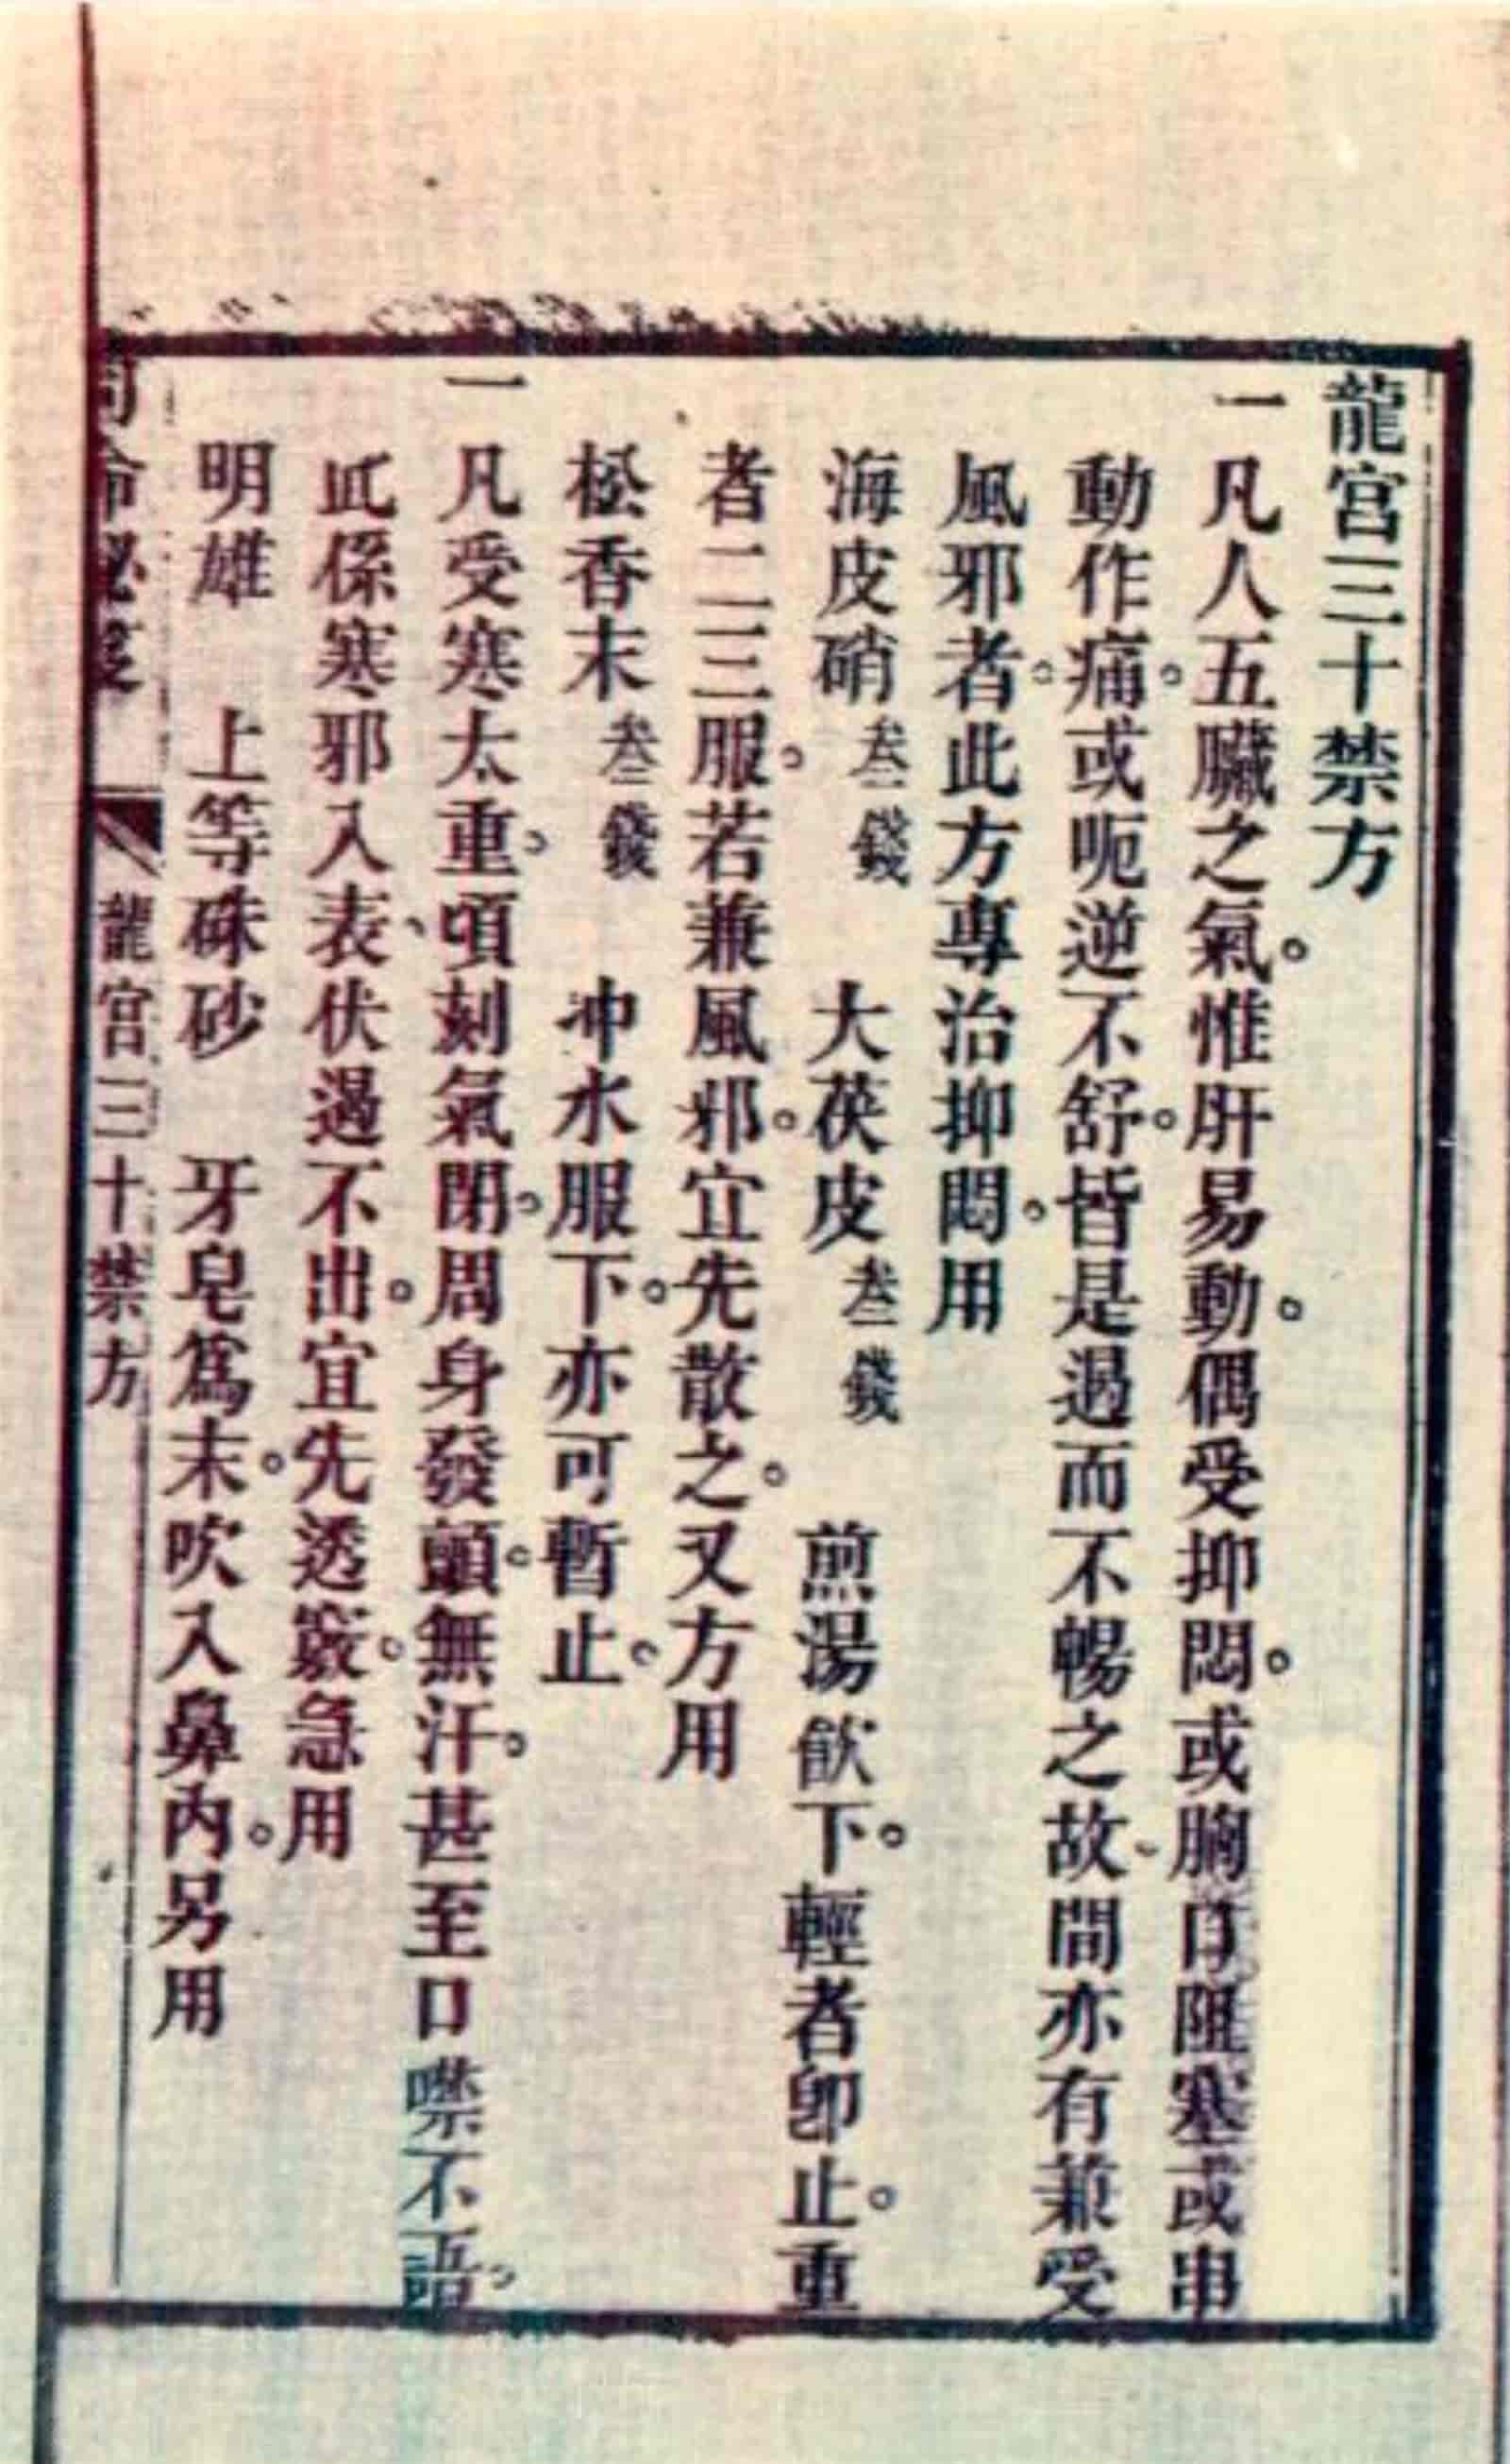 龍宮三十禁方
一凡人五臟之氣。惟肝易動。偶受抑悶。或胸口阻塞或串
動作痛。或呃逆不舒。皆是遏而不暢之故、間亦有兼受
風邪者。此方專治抑悶。用
海皮硝叁錢 大茯皮叁錢 煎湯飲下。輕者卽止。重
者二三服。若兼風邪。宜先散之。又方用
松香末叁錢 冲水服下。亦可暫止。
一凡受寒太重。頃刻氣閉。周身發顫。無汗。甚至口噤不語。
此係寒邪入表、伏遏不出。宜先透竅。急用
明雄 上等硃砂 牙皂爲末。吹入鼻內。另用
命秘笈 龍宮三十禁方